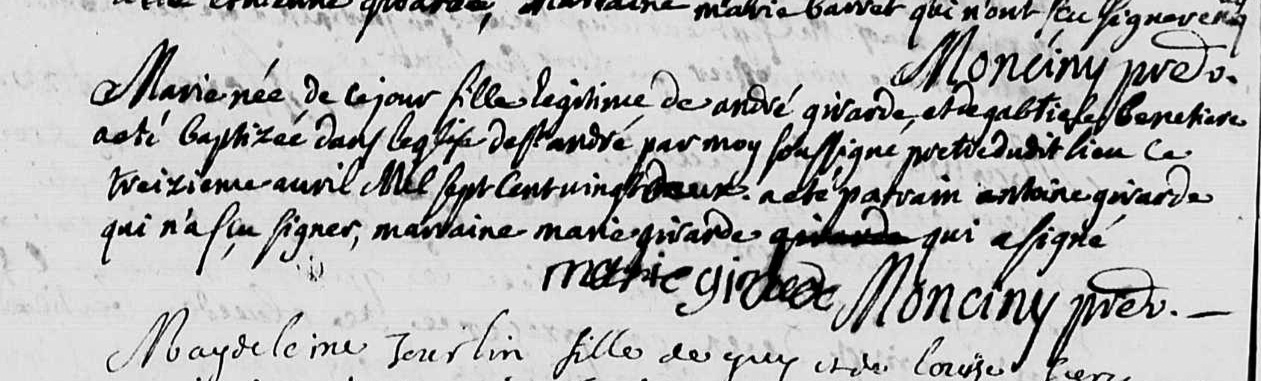 a été etiienne girarde, marraine marie barret qui n'ont sçu signer enq
Monciny pred.
Marie née de ce jour fille legitime de andré girarde, et de gabrielle benetiere
a eté baptizée dans leglise de st andré par moy soussigné pretre dudit lieu ce
treizieme auril Mil sept cent vingt deux. a eté parain antoine girarde
qui n'a sçu signer, marraine marie girarde qui a signé
marie girarde Monciny pred. —
Magdeleine Jourlin fille de guy et de louise